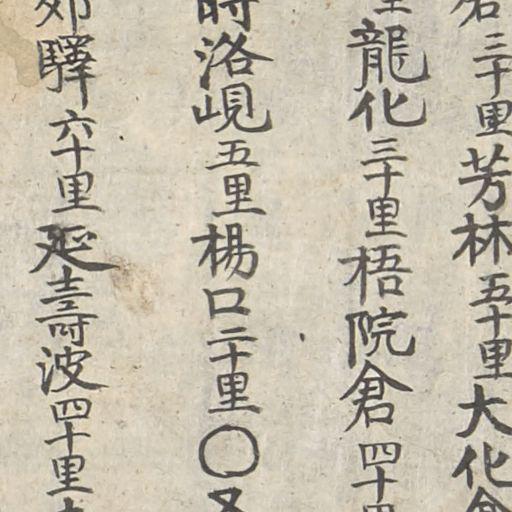 三十里芳林五十里大化倉
里龍化三十里梧院倉四十里
時洛峴五里楊口二十里〇又
驛六十里延壽波四十里